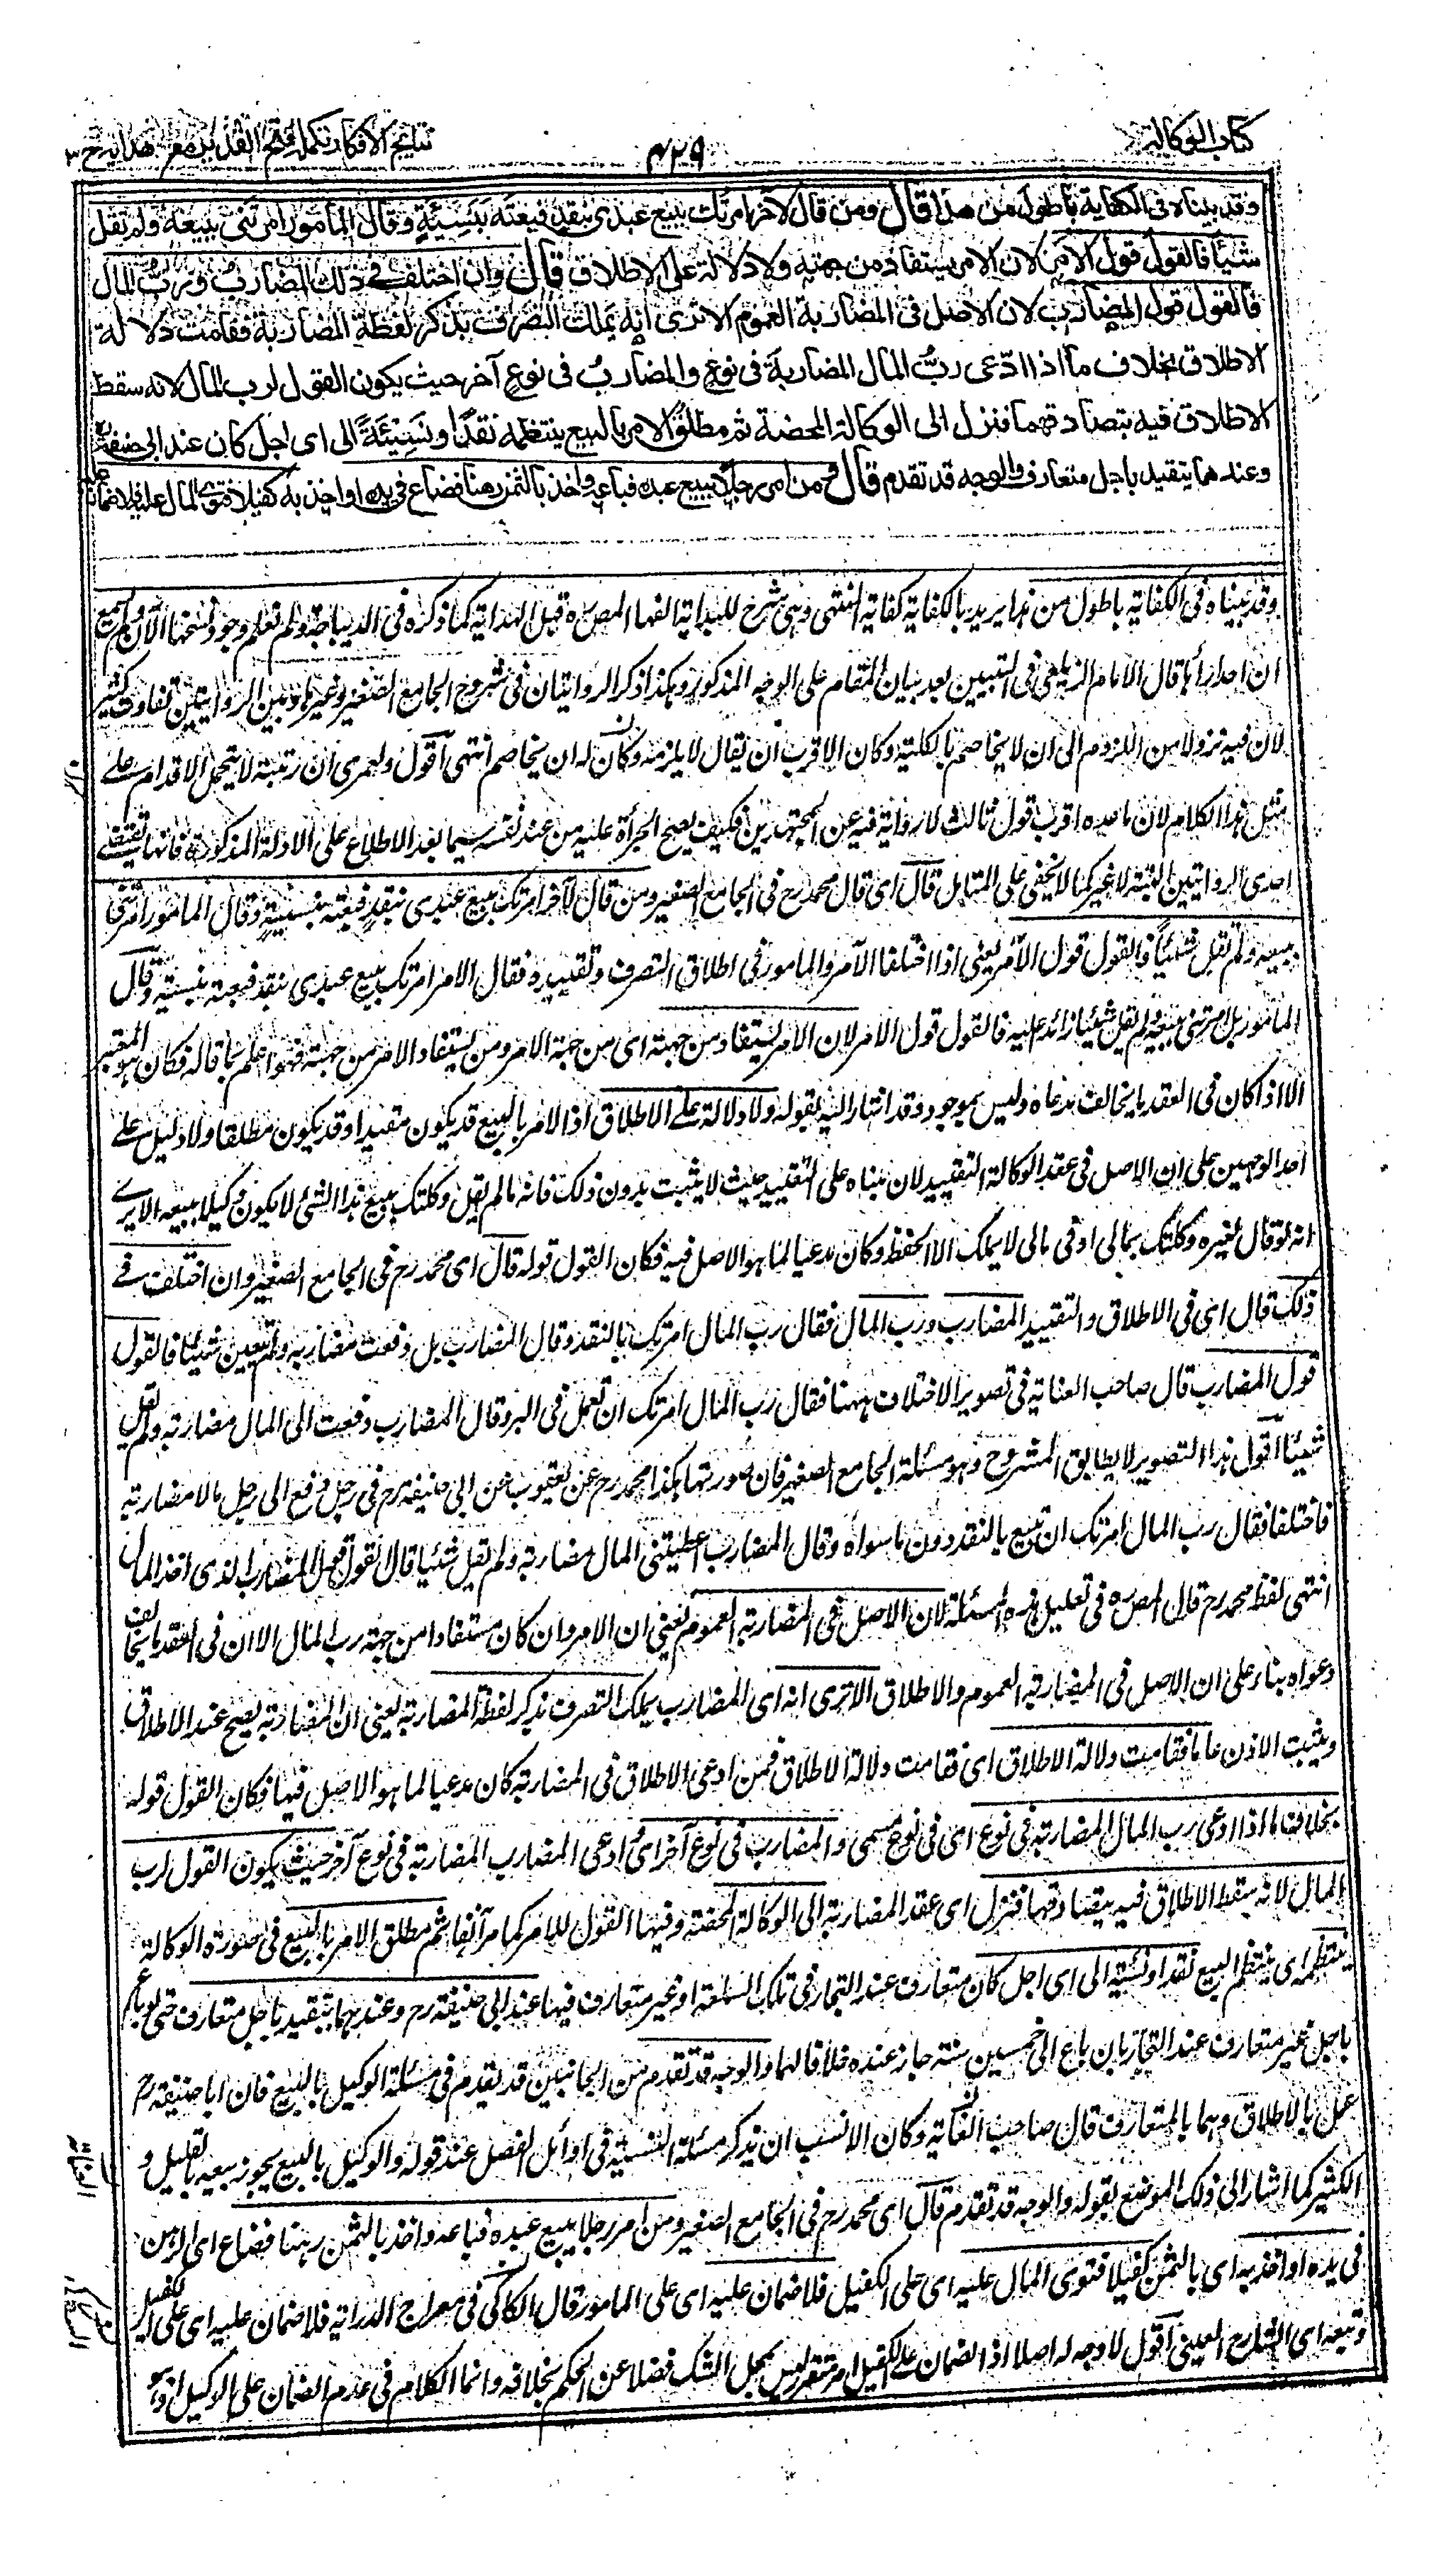 كتاب الوكالة
٤٢٩
نتائج الافكار تكملة فتح القدير مع الهداية ج ٣
وقد بيناه فى الكفاية باطول من هذا قال ومن قال لآخر امرتك ببيع عبدى بنقد فبعته بنسيئة وقال المأمور امرتنى ببيعه ولم تقل
شيئا فالقول قول الآمر لان الامر يستفاد من جهته ولا دلالة على الاطلاق قال وان اختلف فى ذلك المضارب ورب المال
فالقول قول المضارب لان الاصل فى المضاربة العموم الا ترى انه يملك التصرف بذكر لفظة المضاربة فقامت دلالة
الاطلاق بخلاف ما اذا ادّعى ربُّ المال المضاربة فى نوع والمضاربُ فى نوع آخر حيث يكون القول لرب المال لانه سقط
الاطلاق فيه بتصادقهما فنزل الى الوكالة المحضة ثم مطلق الامر بالبيع ينتظمه نقدًا ونسيئةً الى اى اجل كان عند ابى حنيفة رح
وعندهما يتقيد باجل متعارف والوجه قد تقدم قال ومن امر رجلا ببيع عبده فباعه واخذ بالثمن رهنا فضاع فى يده او اخذ به كفيلا فتوى المال عليه فلا ضمان عليه
وقد بيناه فى الكفاية باطول من هذا يريد بالكفاية كفاية المنتهى وهى شرح للبداية الفها المصره قبل الهداية كما ذكره فى الديباجة ولم نعلم وجود نسختها الآن ولم نسمع
ان احدا رأها قال الامام الزيلعى فى التبيين بعد بيان المقام على الوجه المذكور وهكذا ذكر الروايتان فى شروح الجامع الصغير وغيرها وبين الروايتين تفاوت كثير
لان فيه نزولا من اللزوم الى ان لا يخاصم بالكلية وكان الاقرب ان يقال لا يلزمه وكان له ان يخاصم انتهى اقول ولعمرى ان رتبته لا يتحمل الاقدام على
مثل هذا الكلام لان ما عده اقرب قول ثالث لا رواية فيه عن المجتهدين فكيف يصح الجرأة عليه من عند نفسه سيما بعد الاطلاع على الادلة المذكورة فانها تقتضى
احدى الروايتين البتة لا غير كما لا يخفى على المتأمل قال اى قال محمد رح فى الجامع الصغير ومن قال لآخر امرتك ببيع عبدى بنقد فبعته بنسيئة وقال المامور امرتنى
ببيعه ولم تقل شيئا فالقول قول الآمر يعنى اذا اختلفا الآمر والمامور فى اطلاق التصرف وتقييده فقال الامر امرتك ببيع عبدى بنقد فبعته بنسيئة وقال
المامور بل امرتنى ببيعه ولم تقل شيئا زائدا عليه فالقول قول الامر لان الامر يستفاد من جهته اى من جهة الامر ومن يستفاد الامر من جهته فهو اعلم بما قاله فكان هو المعتبر
الا اذا كان فى العقد ما يخالف مدعاه وليس بموجود وقد اشار اليه بقوله ولا دلالة على الاطلاق اذ الامر بالبيع قد يكون مقيدا وقد يكون مطلقا ولا دليل على
احد الوجهين على ان الاصل فى عقد الوكالة التقييد لان مبناه على التقييد حيث لا يثبت بدون ذلك فانه ما لم يقل وكلتك ببيع هذا الشئ لا يكون وكيلا ببيعه الا يرى
انه لو قال لغيره وكلتك بمالى او فى مالى لا يملك الا الحفظ وكان مدعيا لما هو الاصل فيه فكان القول قوله قال اى محمد رح فى الجامع الصغير وان اختلف فى
ذلك قال اى فى الاطلاق والتقييد المضارب ورب المال فقال رب المال امرتك بالنقد وقال المضارب بل دفعت مضاربة ولم تعين شيئا فالقول
قول المضارب قال صاحب العناية فى تصوير الاختلاف ههنا فقال رب المال امرتك ان تعمل فى البر وقال المضارب دفعت الى المال مضاربة ولم تقل
شيئا اقول هذا التصوير لا يطابق المشروح وهو مسئلة الجامع الصغير فان صورتها هكذا محمد رح عن يعقوب عن ابى حنيفة رح فى رجل دفع الى رجل مالا مضاربة
فاختلفا فقال رب المال امرتك ان تبيع بالنقد دون ما سواه وقال المضارب اعطيتنى المال مضاربة ولم تقل شيئا قال القول قول المضارب الذى اخذ المال
انتهى لفظ محمد رح قال المصره فى تعليل هذه المسئلة لان الاصل فى المضاربة العموم يعنى ان الامر وان كان مستفادا من جهة رب المال الا ان فى العقد ما يخالف
دعواه بناء على ان الاصل فى المضاربة العموم والاطلاق الا ترى انه اى المضارب يملك التصرف بذكر لفظة المضاربة يعنى ان المضاربة يصح عند الاطلاق
ويثبت الاذن عاما فقامت دلالة الاطلاق اى فقامت دلالة الاطلاق فمن ادعى الاطلاق فى المضاربة كان مدعيا لما هو الاصل فيها فكان القول قوله
بخلاف ما اذا ادعى رب المال المضاربة فى نوع اى فى نوع مسمى والمضارب فى نوع آخر اى ادعى المضارب المضاربة فى نوع آخر حيث يكون القول لرب
المال لانه سقط الاطلاق فيه بتصادقهما فنزل اى عقد المضاربة الى الوكالة المحضة وفيها القول للامر كما مر آنفا ثم مطلق الامر بالبيع فى صورة الوكالة
ينتظمه اى ينتظم البيع نقدا ونسيئة الى اى اجل كان متعارف عند التجار فى تلك السلعة او غير متعارف فيها عند ابى حنيفة رح وعندهما يتقيد باجل متعارف حتى لو باع
باجل غير متعارف عند التجار بان باع الى خمسين سنة جاز عنده خلافا لهما والوجه قد تقدم من الجانبين قد تقدم فى مسئلة الوكيل بالبيع فان ابا حنيفة رح
عمل بالاطلاق وهما بالمتعارف قال صاحب الغاية وكان الانسب ان يذكر مسئلة النسيئة فى اوائل الفصل عند قوله والوكيل بالبيع يجوز بيعه بالقليل و
الكثير كما اشار الى ذلك الموضع بقوله والوجه قد تقدم قال اى محمد رح فى الجامع الصغير ومن امر رجلا ببيع عبده فباعه واخذ بالثمن رهنا فضاع اى الرهن
فى يده او اخذ به اى بالثمن كفيلا فتوى المال عليه اى على الكفيل فلا ضمان عليه اى على المامور قال الكاكى فى معراج الدراية فلا ضمان عليه اى على الكفيل
وتبعه اى الشارح العينى اقول لا وجه له اصلا اذ الضمان على الكفيل امر متقرر ليس بمحل الشك فضلا عن الحكم بخلافه وانما الكلام فى عدم الضمان على الوكيل